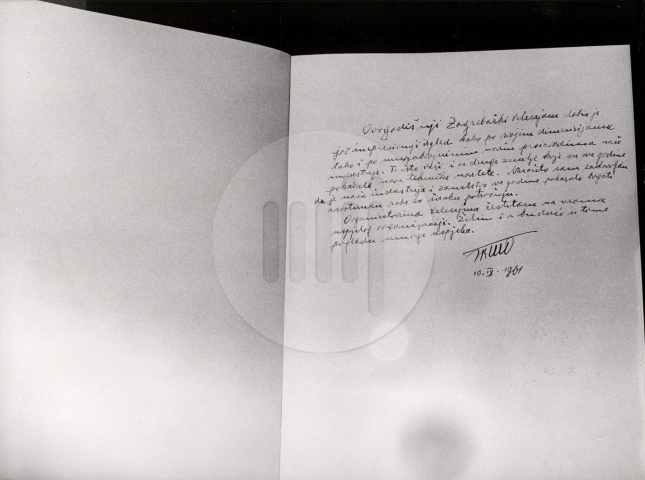 Ovogodišnji Zagrebački Velesajam dobio je
još impresivniji izgled kako po svojim dimenzijama
tako i po mnogobrojnim novim proizvodima naše
industrije. To isto važi i za druge zemlje koje su ove godine
pokazale nove tehničke novitete. Naročito sam zadovoljan
da je naša industrija i zanatstvo ove godine pokazalo bogati
asortiman robe za široku potrošnju.
Organizatorima Velesajma čestitam na veoma
uspjeloj organizaciji. Želim i u buduće u tome
pogledu mnogo uspjeha.
Tito
10. IX. 1961